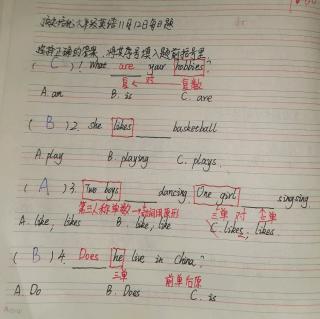 英语11月12日每日题
选择正确的答案,将其序号填入题前括号里
( C ) 1. What are your hobbies?
复 对 复数
A. am B. is C. are
( B ) 2. she likes ____ basketball
A. play B. playing C. plays.
( A ) 3. Two boys ____ dancing. One girl ____ singsing
第三人称单数 动词用原形 三单 对 三单
A. like, likes B. like, like C. likes, likes.
( B ) 4. Does he live in China?
三单 前单后原
A. Do B. Does C. is